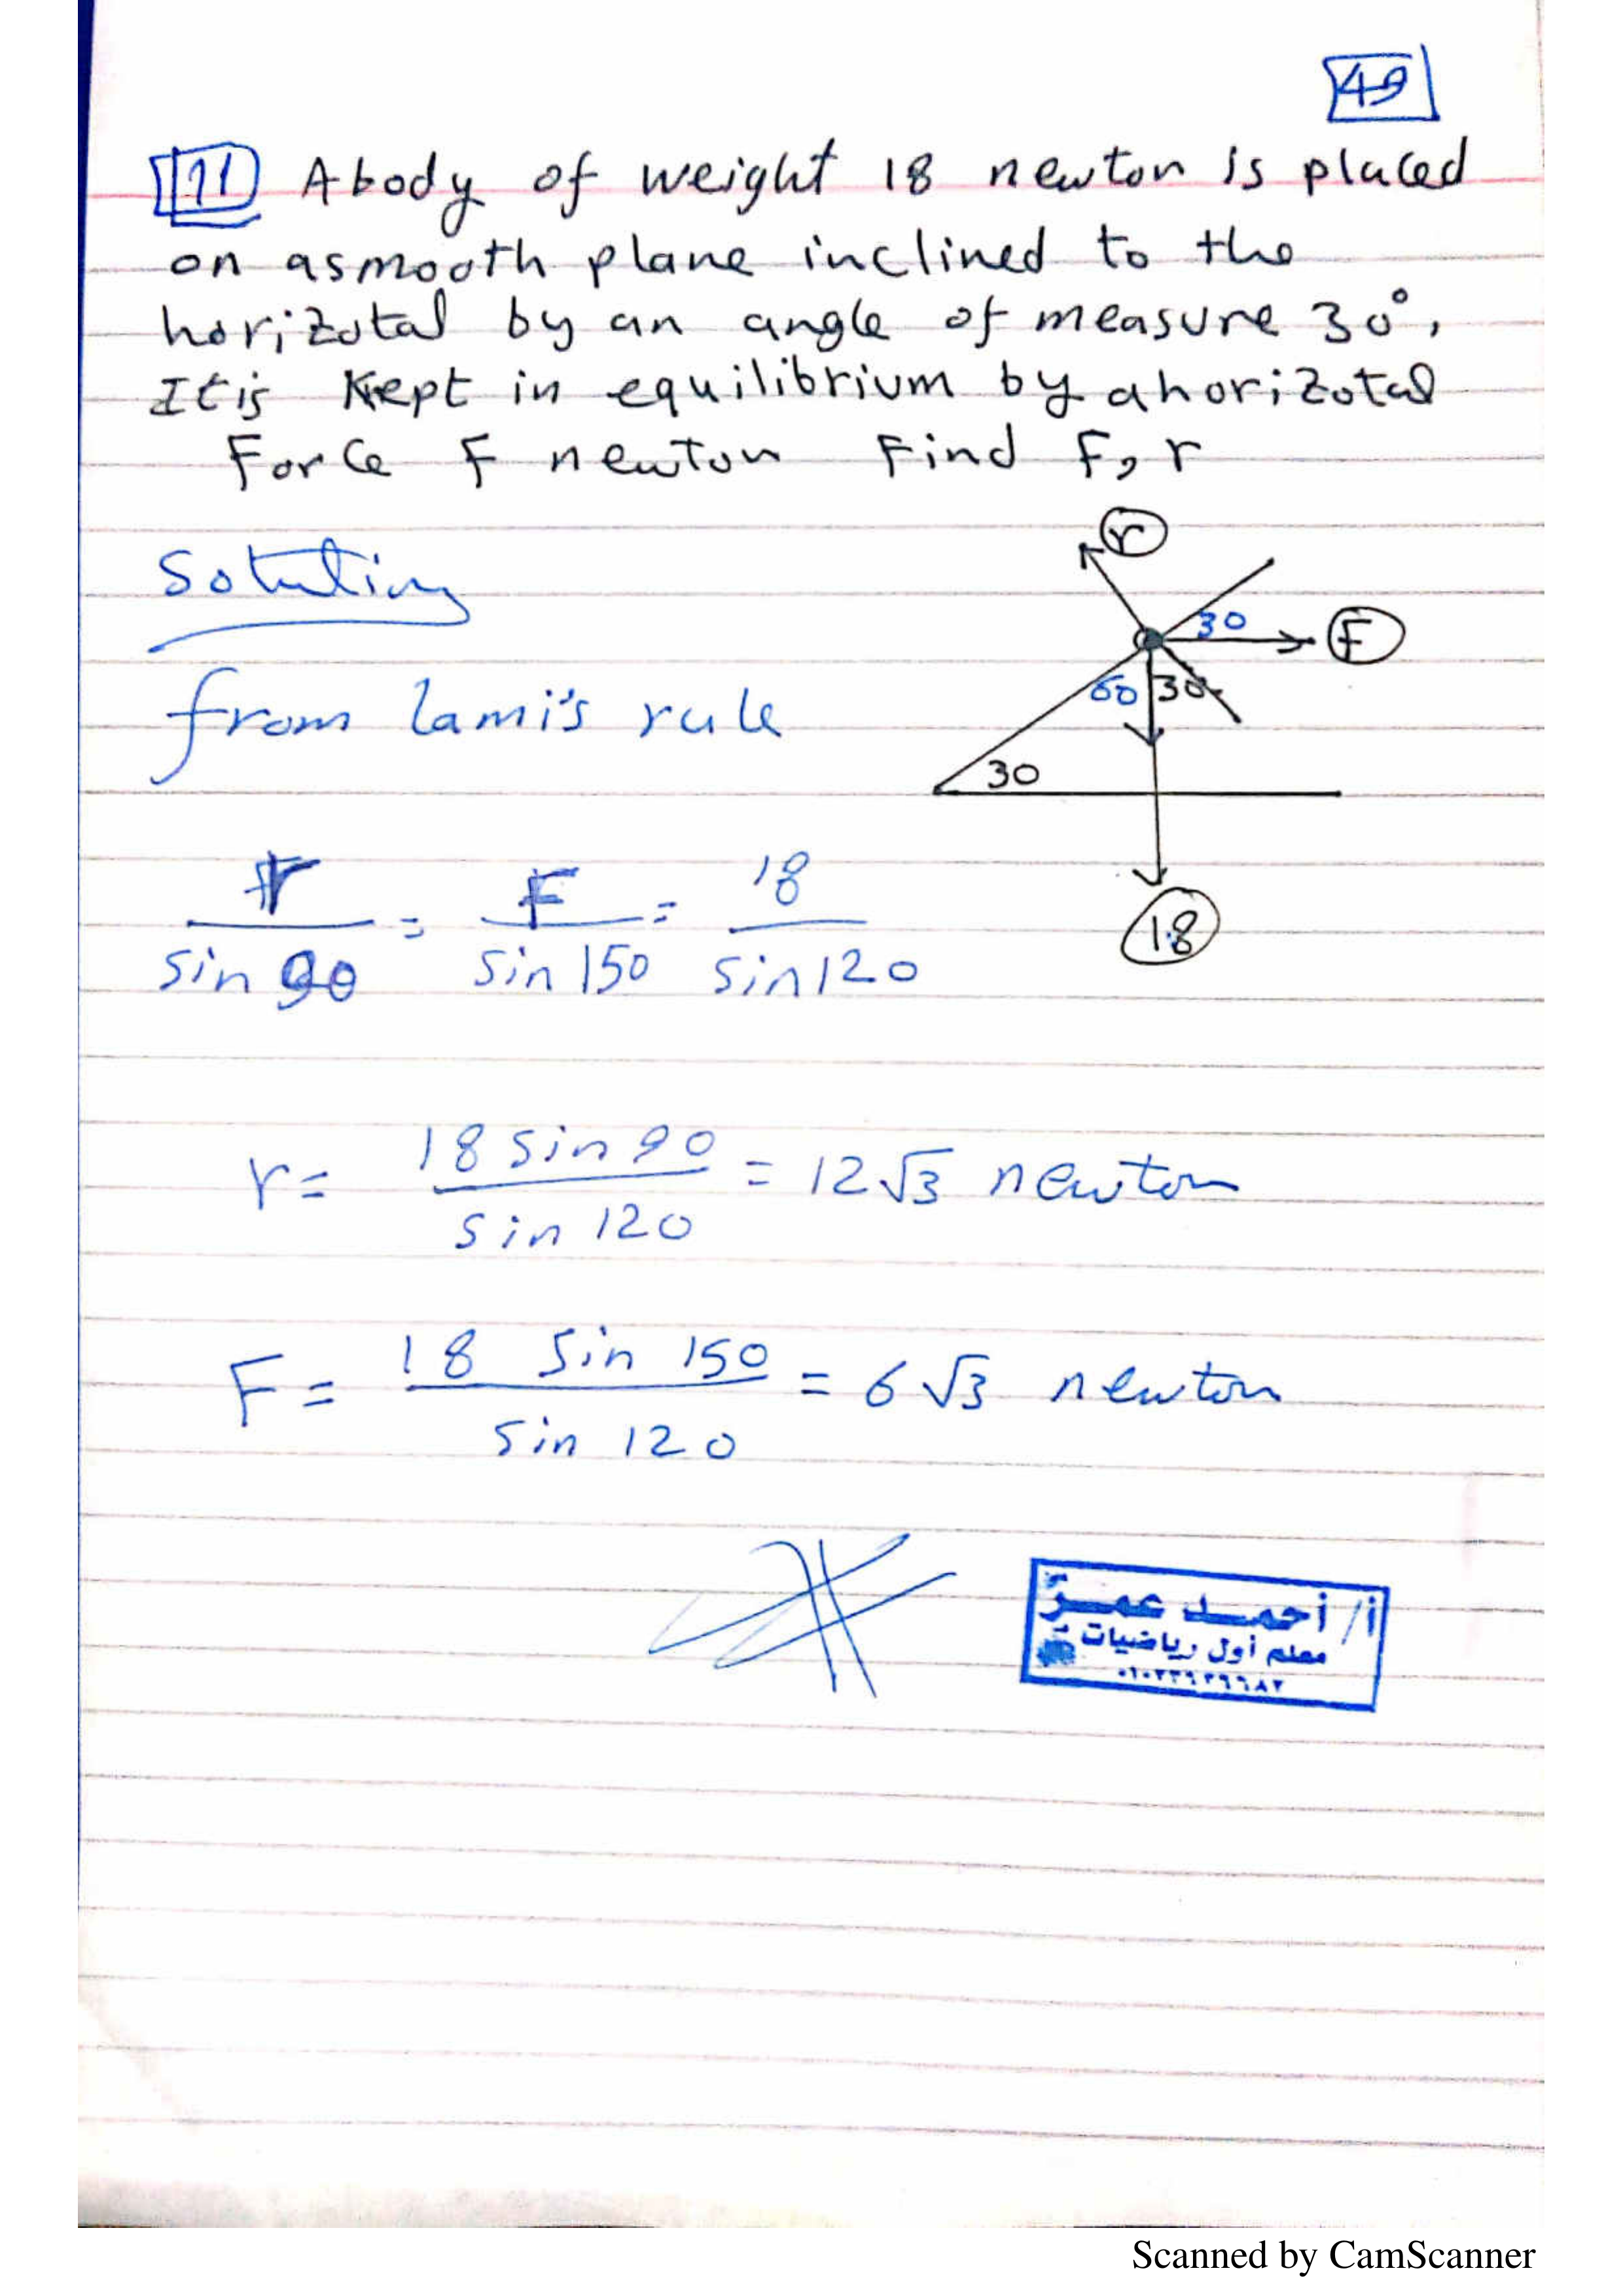 49
11 A body of weight 18 newton is placed
on a smooth plane inclined to the
horizotal by an angle of measure 30°,
It is Kept in equilibrium by a horizotal
Force F newton Find F, r
Solution
r
30
F
60 30
30
18
from lami's rule
r/sin 90 = F/sin 150 = 18/sin 120
r = 18 sin 90/sin 120 = 12√3 newton
F = 18 sin 150/sin 120 = 6√3 newton
أ/ أحمد عمر
معلم أول رياضيات
Scanned by CamScanner